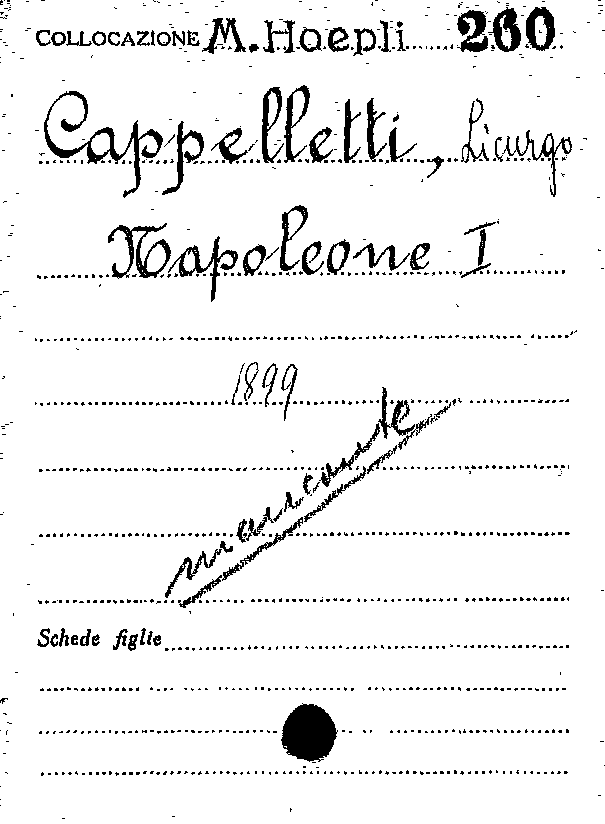 COLLOCAZIONE M. Hoepli 260
Cappelletti, Licurgo
Napoleone I
1899
mancante
Schede figlie